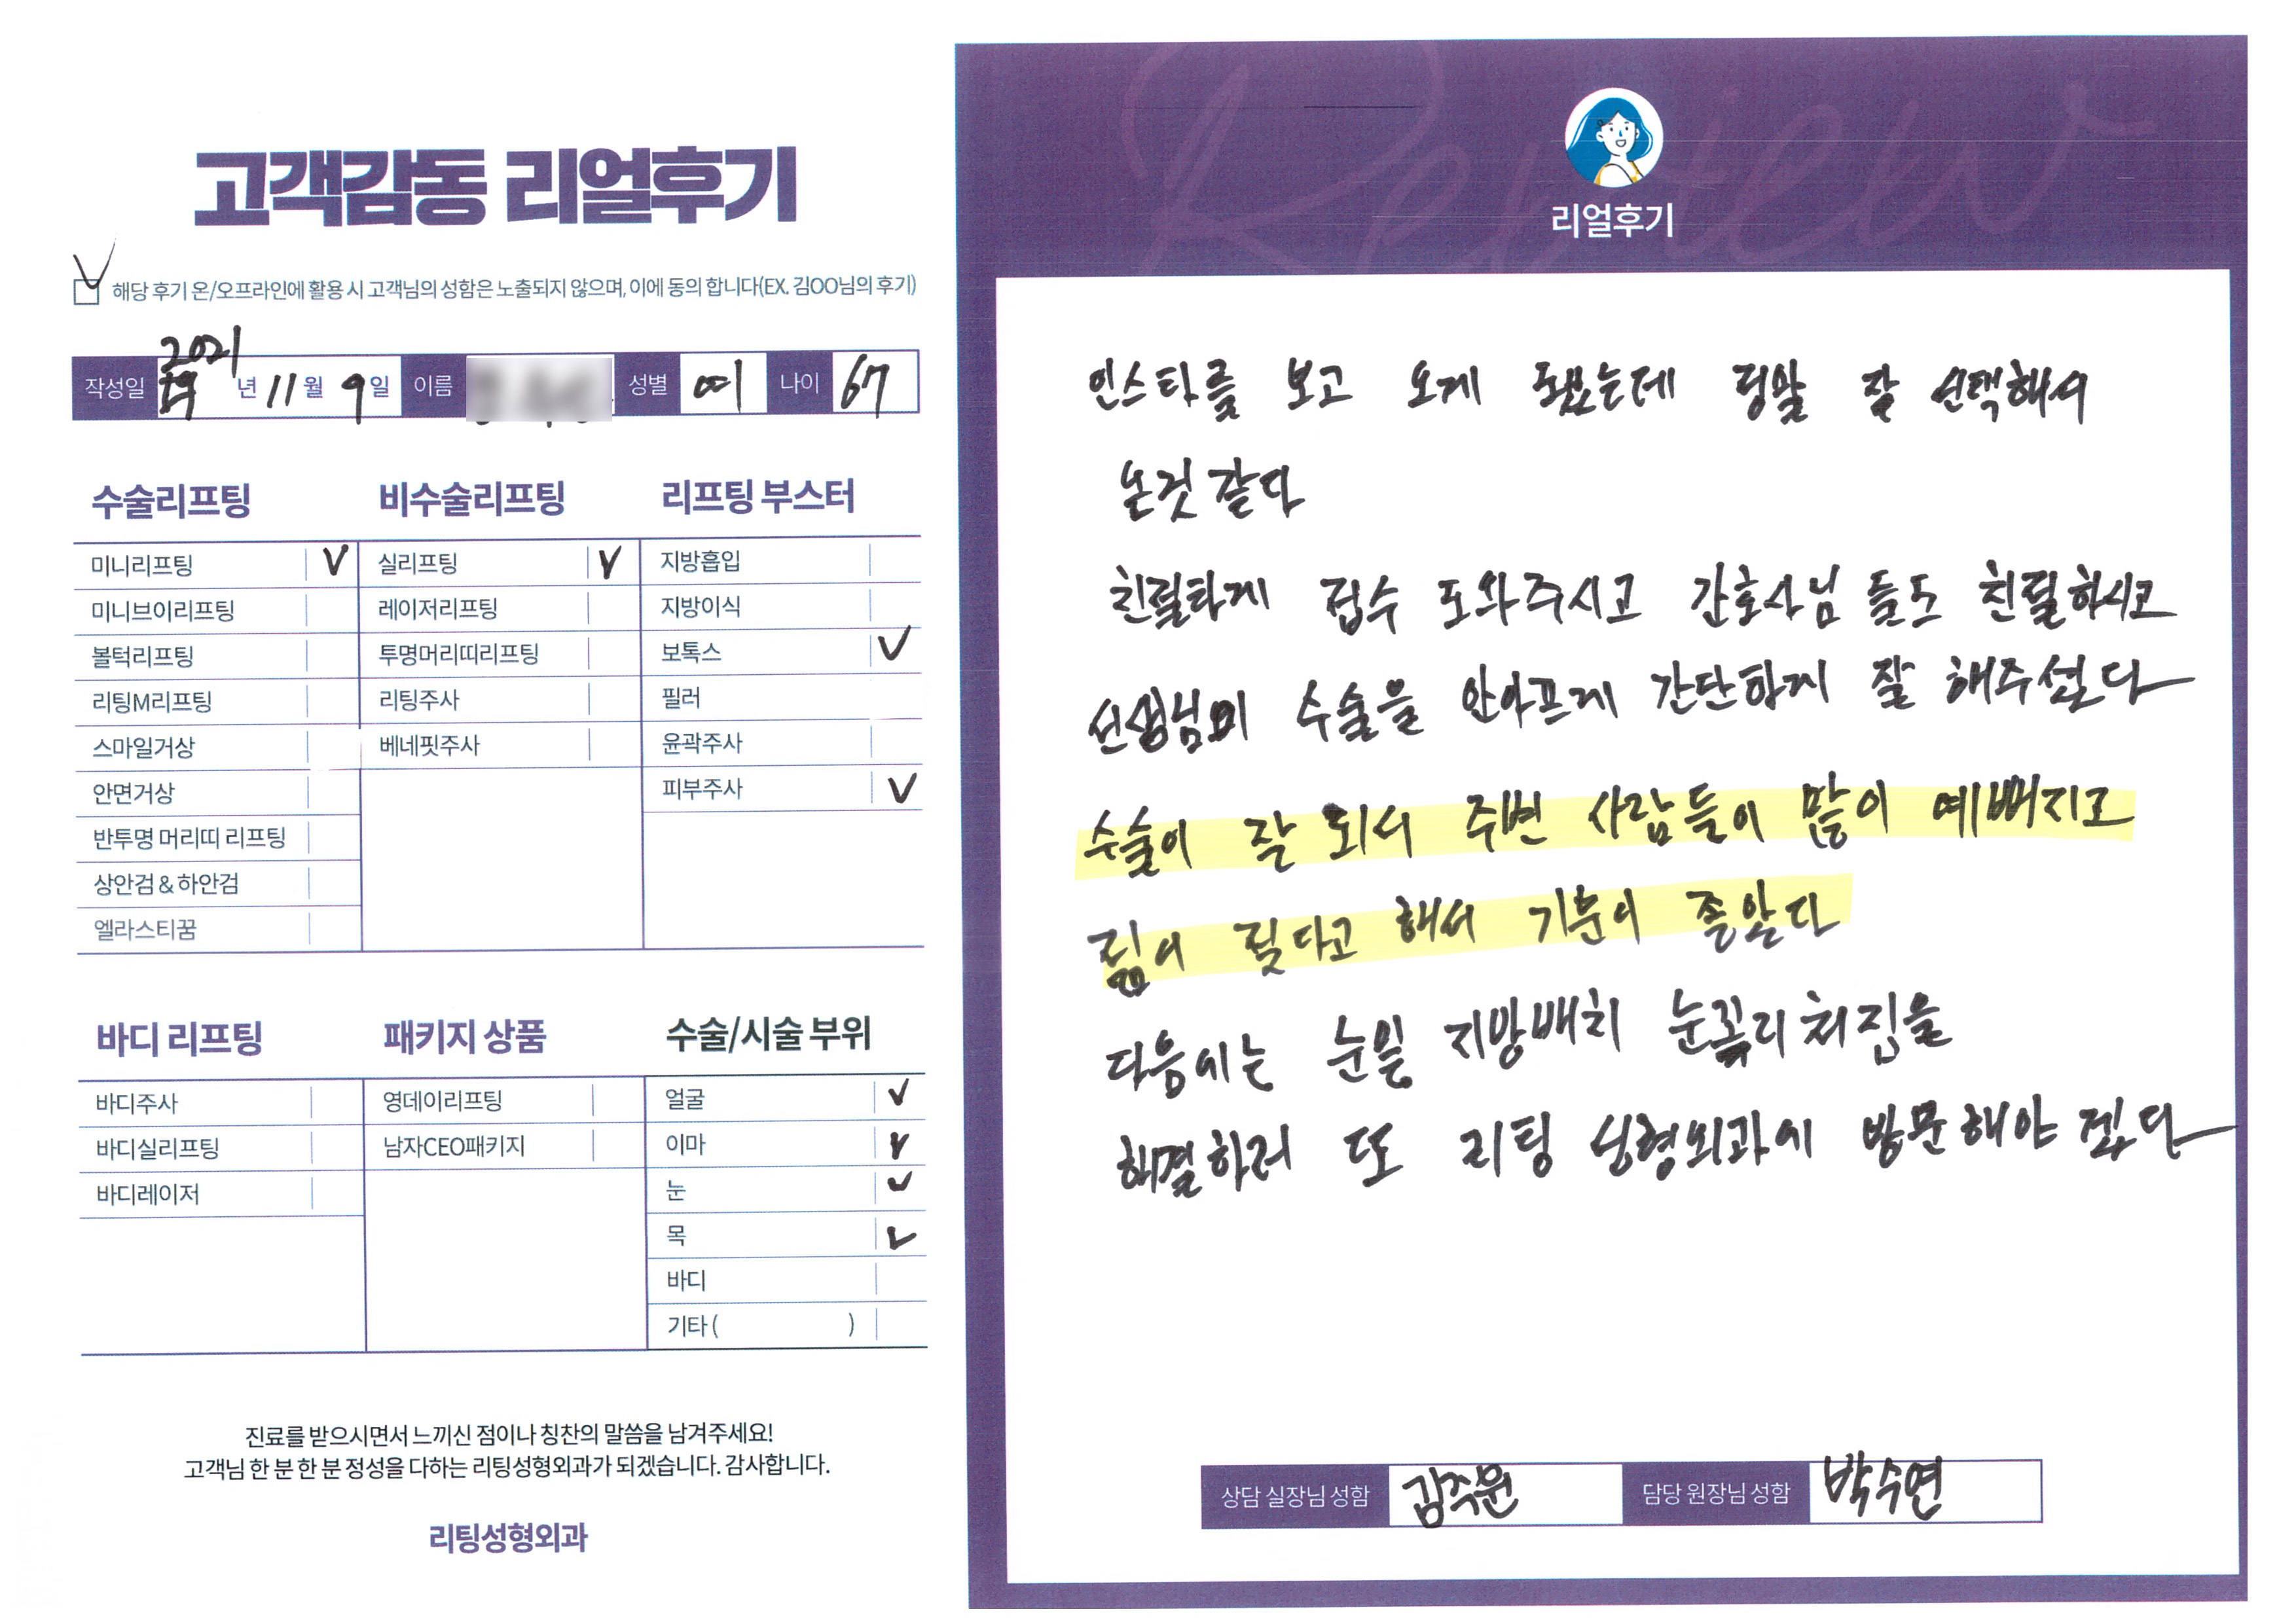 고객감동 리얼후기
해당 후기 온/오프라인에 활용 시 고객님의 성함은 노출되지 않으며, 이에 동의 합니다(EX. 김OO님의 후기)
작성일 2021 년 11 월 9 일 이름 성별 여 나이 67
수술리프팅 비수술리프팅 리프팅 부스터
미니리프팅 V 실리프팅 V 지방흡입
미니브이리프팅 레이저리프팅 지방이식
볼턱리프팅 투명머리띠리프팅 보톡스 V
리팅M리프팅 리팅주사 필러
스마일거상 베네핏주사 윤곽주사
안면거상 피부주사 V
반투명 머리띠 리프팅
상안검 & 하안검
엘라스티꿈
바디 리프팅 패키지 상품 수술/시술 부위
바디주사 영데이리프팅 얼굴 V
바디실리프팅 남자CEO패키지 이마 V
바디레이저 눈 V
목 V
바디
기타 ( )
진료를 받으시면서 느끼신 점이나 칭찬의 말씀을 남겨주세요!
고객님 한 분 한 분 정성을 다하는 리팅성형외과가 되겠습니다. 감사합니다.
리팅성형외과
Review
리얼후기
인스타를 보고 오게 됬는데 정말 잘 선택해서
온것 같다
친절하게 접수 도와주시고 간호사님 들도 친절하시고
선생님이 수술을 안아프게 간단하게 잘 해주셨다
수술이 잘 되서 주변 사람들이 많이 예뻐지고
젊어 졌다고 해서 기분이 좋았다
다음에는 눈밑 지방배치 눈꼬리 처짐을
해결하러 또 리팅 성형외과에 방문해야 겠다
상담 실장님 성함 김주원 담당 원장님 성함 박수연